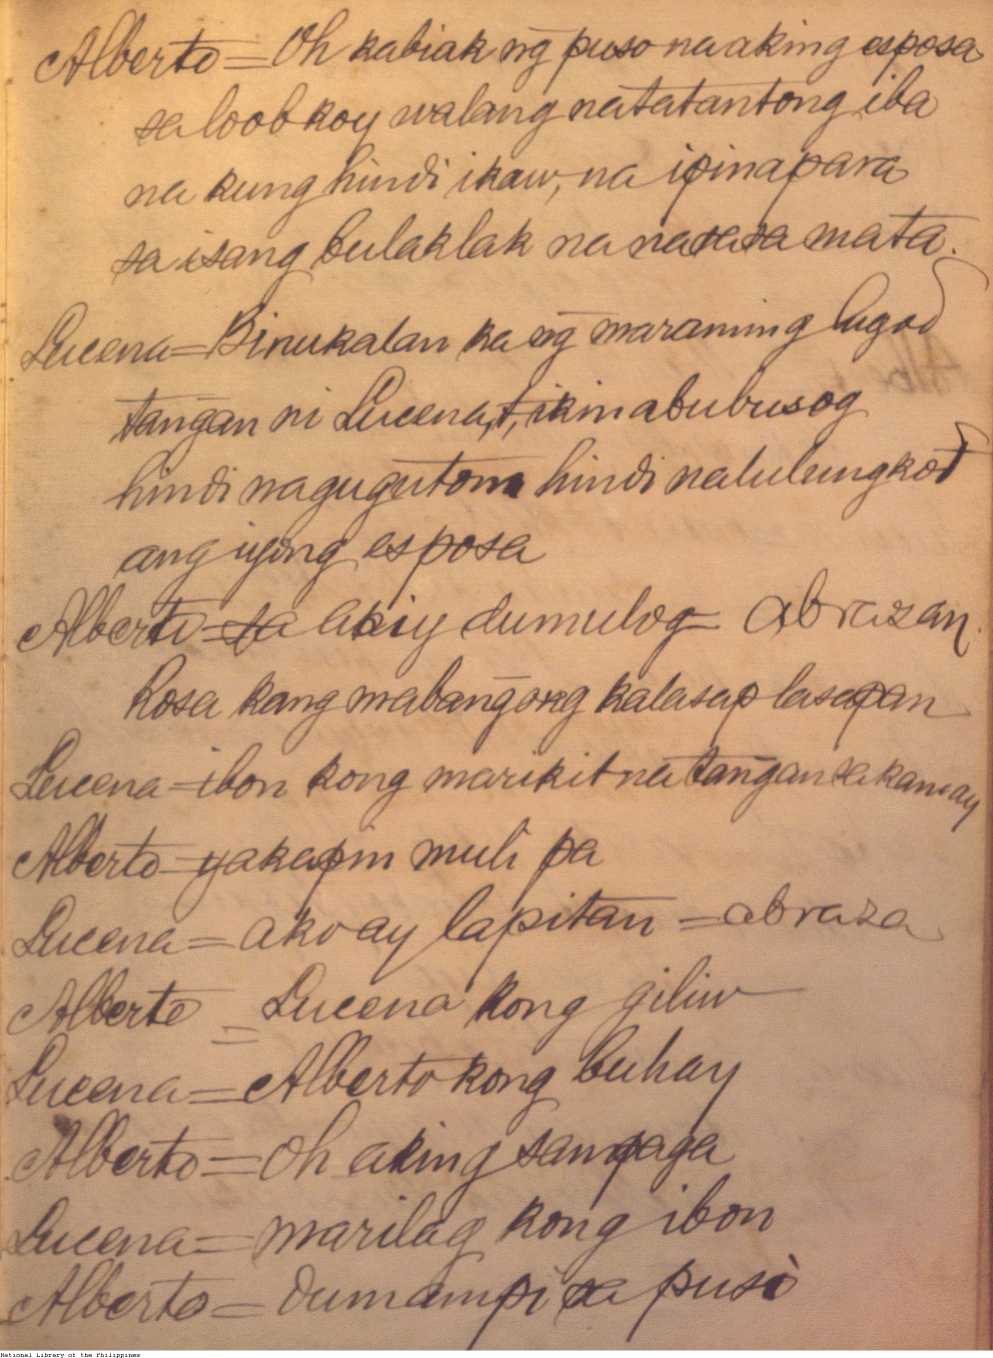 Alberto = Oh kabiak ng̃ puso na aking esposa
sa loob koy walang natatantong iba
na kung hindi ikaw, na ipinapara
sa isang bulaklak na nasasa mata.
Lucena = Binukalan ka ng̃ maraming lugod
tang̃an ni Lucena,t, ikinabubusog
hindi nagugutom hindi nalulungkot
ang iyong esposa
Alberto = sa akiy dumulog = abrazan.
Rosa kang mabang̃ong kalasap lasapan
Lucena = ibon kong marikit na tang̃an sa kamay
Alberto = yakapin muli pa
Lucena = ako ay lapitan = abraza
Alberto = Lucena kong giliw
Lucena = Alberto kong buhay
Alberto = Oh aking sampaga
Lucena = marilag kong ibon
Alberto = Dumampi sa puso
National Library of the Philippines